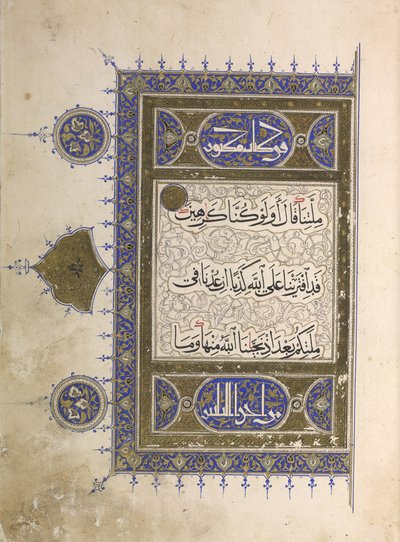 2
في كتاب مكنون
مِلَّتِنَا قَالَ أَوَلَوْ كُنَّا كَرِهِينَ
قَدِ افْتَرَيْنَا عَلَى اللَّهِ كَذِبًا إِنْ عُدْنَا فِي
مِلَّتِكُمْ بَعْدَ إِذْ نَجَّىنَا اللَّهُ مِنْهَا وَمَا